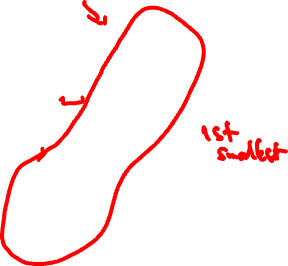 1st
smallest